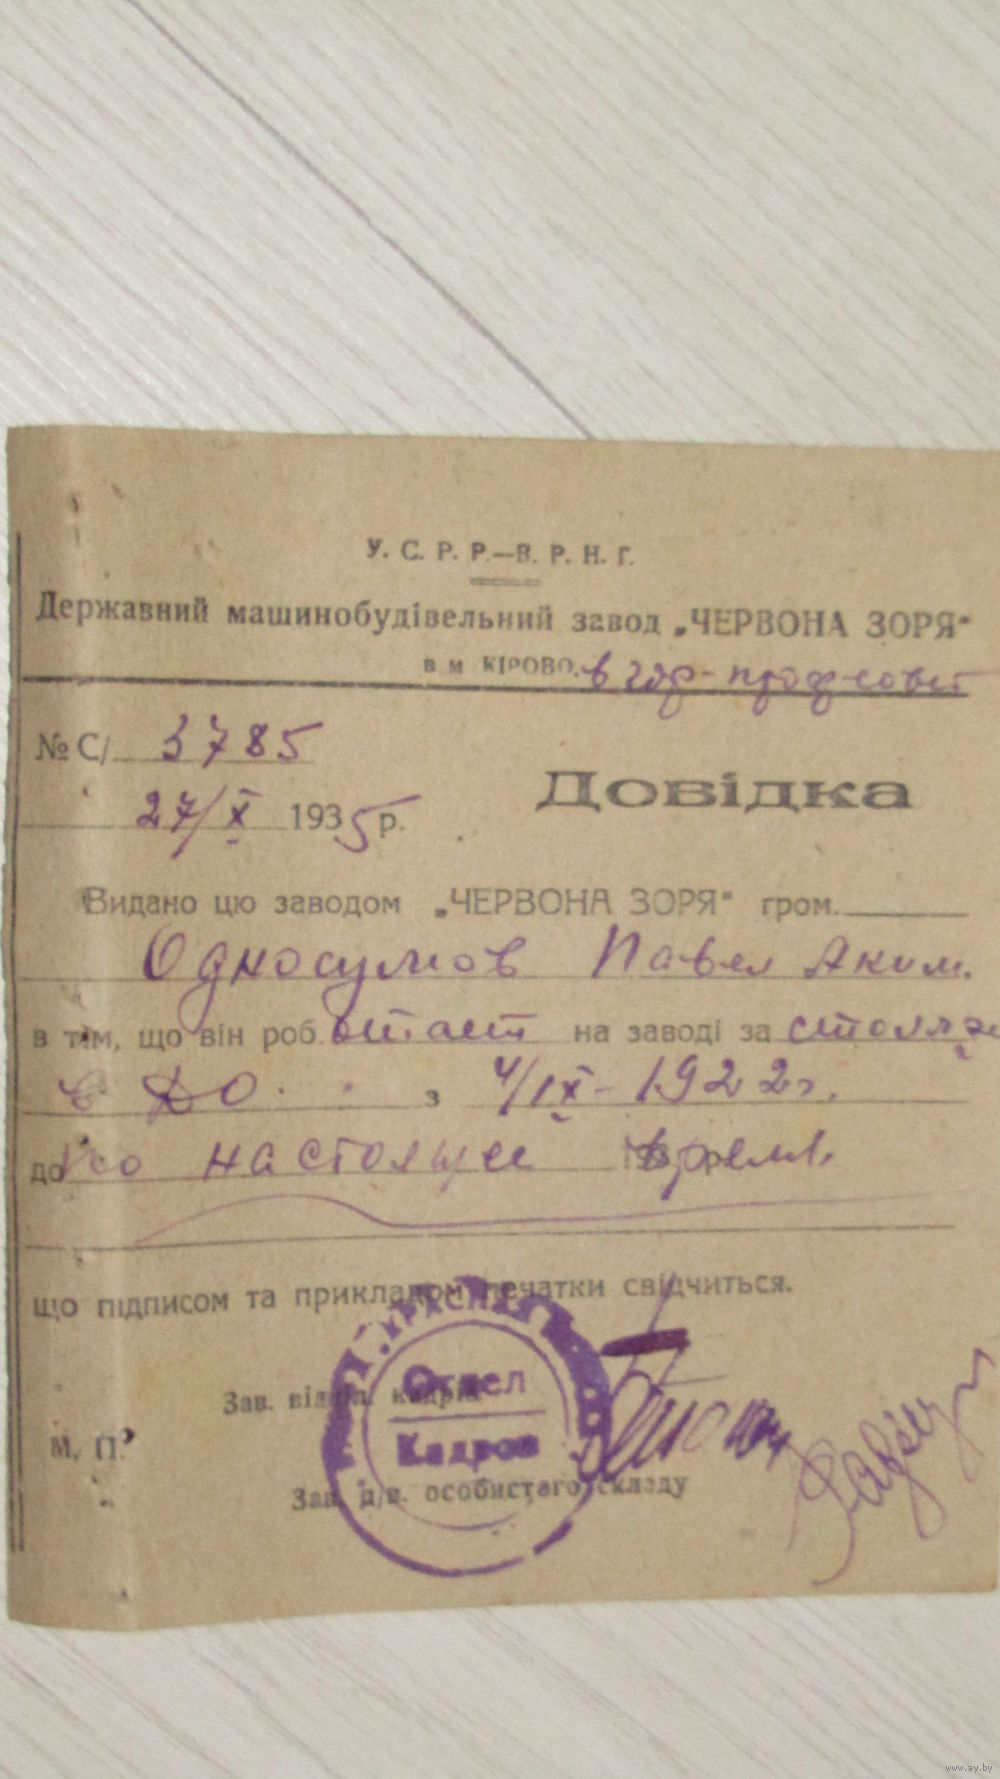 У. С. Р. Р.—В. Р. Н. Г.
Державний машинобудівельний завод „ЧЕРВОНА ЗОРЯ"
в м КІРОВО. в гор-профсовет
№ С/ 3785
27/X 1935 р.
Довідка
Видано цю заводом „ЧЕРВОНА ЗОРЯ" гром.
Односумов Павел Аким.
в тім, що він роботает на заводі за столяра
в ДО. з 4/IX-1922г.
до по настоящее время.
що підписом та прикладом печатки свідчиться.
Зав. відділ. кадрів
Отдел
Кадров
М. П.
Зав. д/в. особистаго складу
www.ay.by